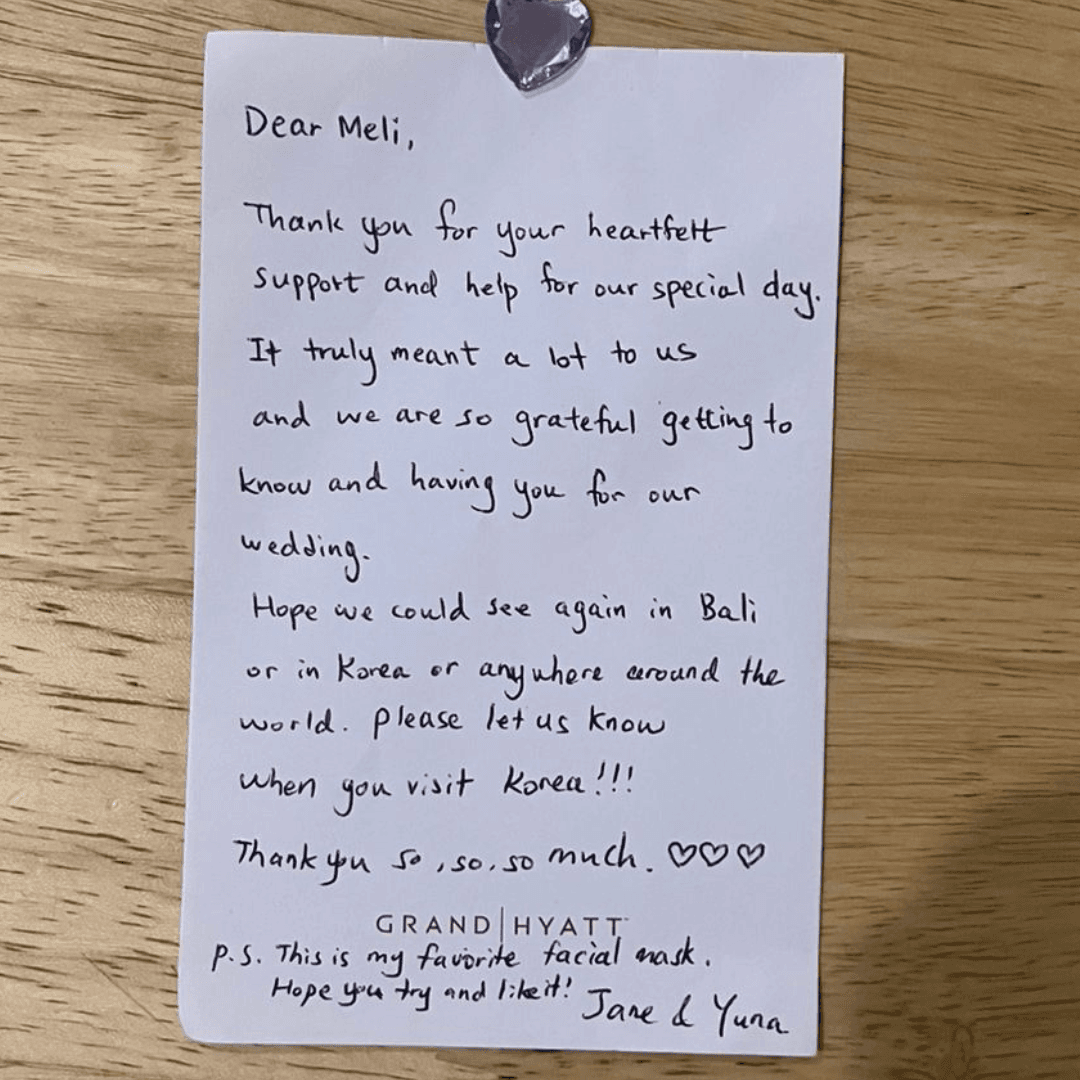 Dear Meli,
Thank you for your heartfelt
support and help for our special day.
It truly meant a lot to us
and we are so grateful getting to
know and having you for our
wedding.
Hope we could see again in Bali
or in Korea or anywhere around the
world. please let us know
when you visit Korea!!!
Thank you so, so, so much. ♡♡♡
GRAND|HYATT™
p.s. This is my favorite facial mask.
Hope you try and like it!
Jane & Yuna